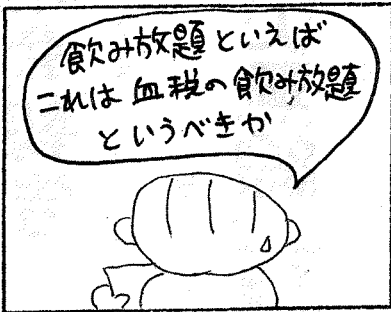 飲み放題といえば
これは血税の飲み放題
というべきか